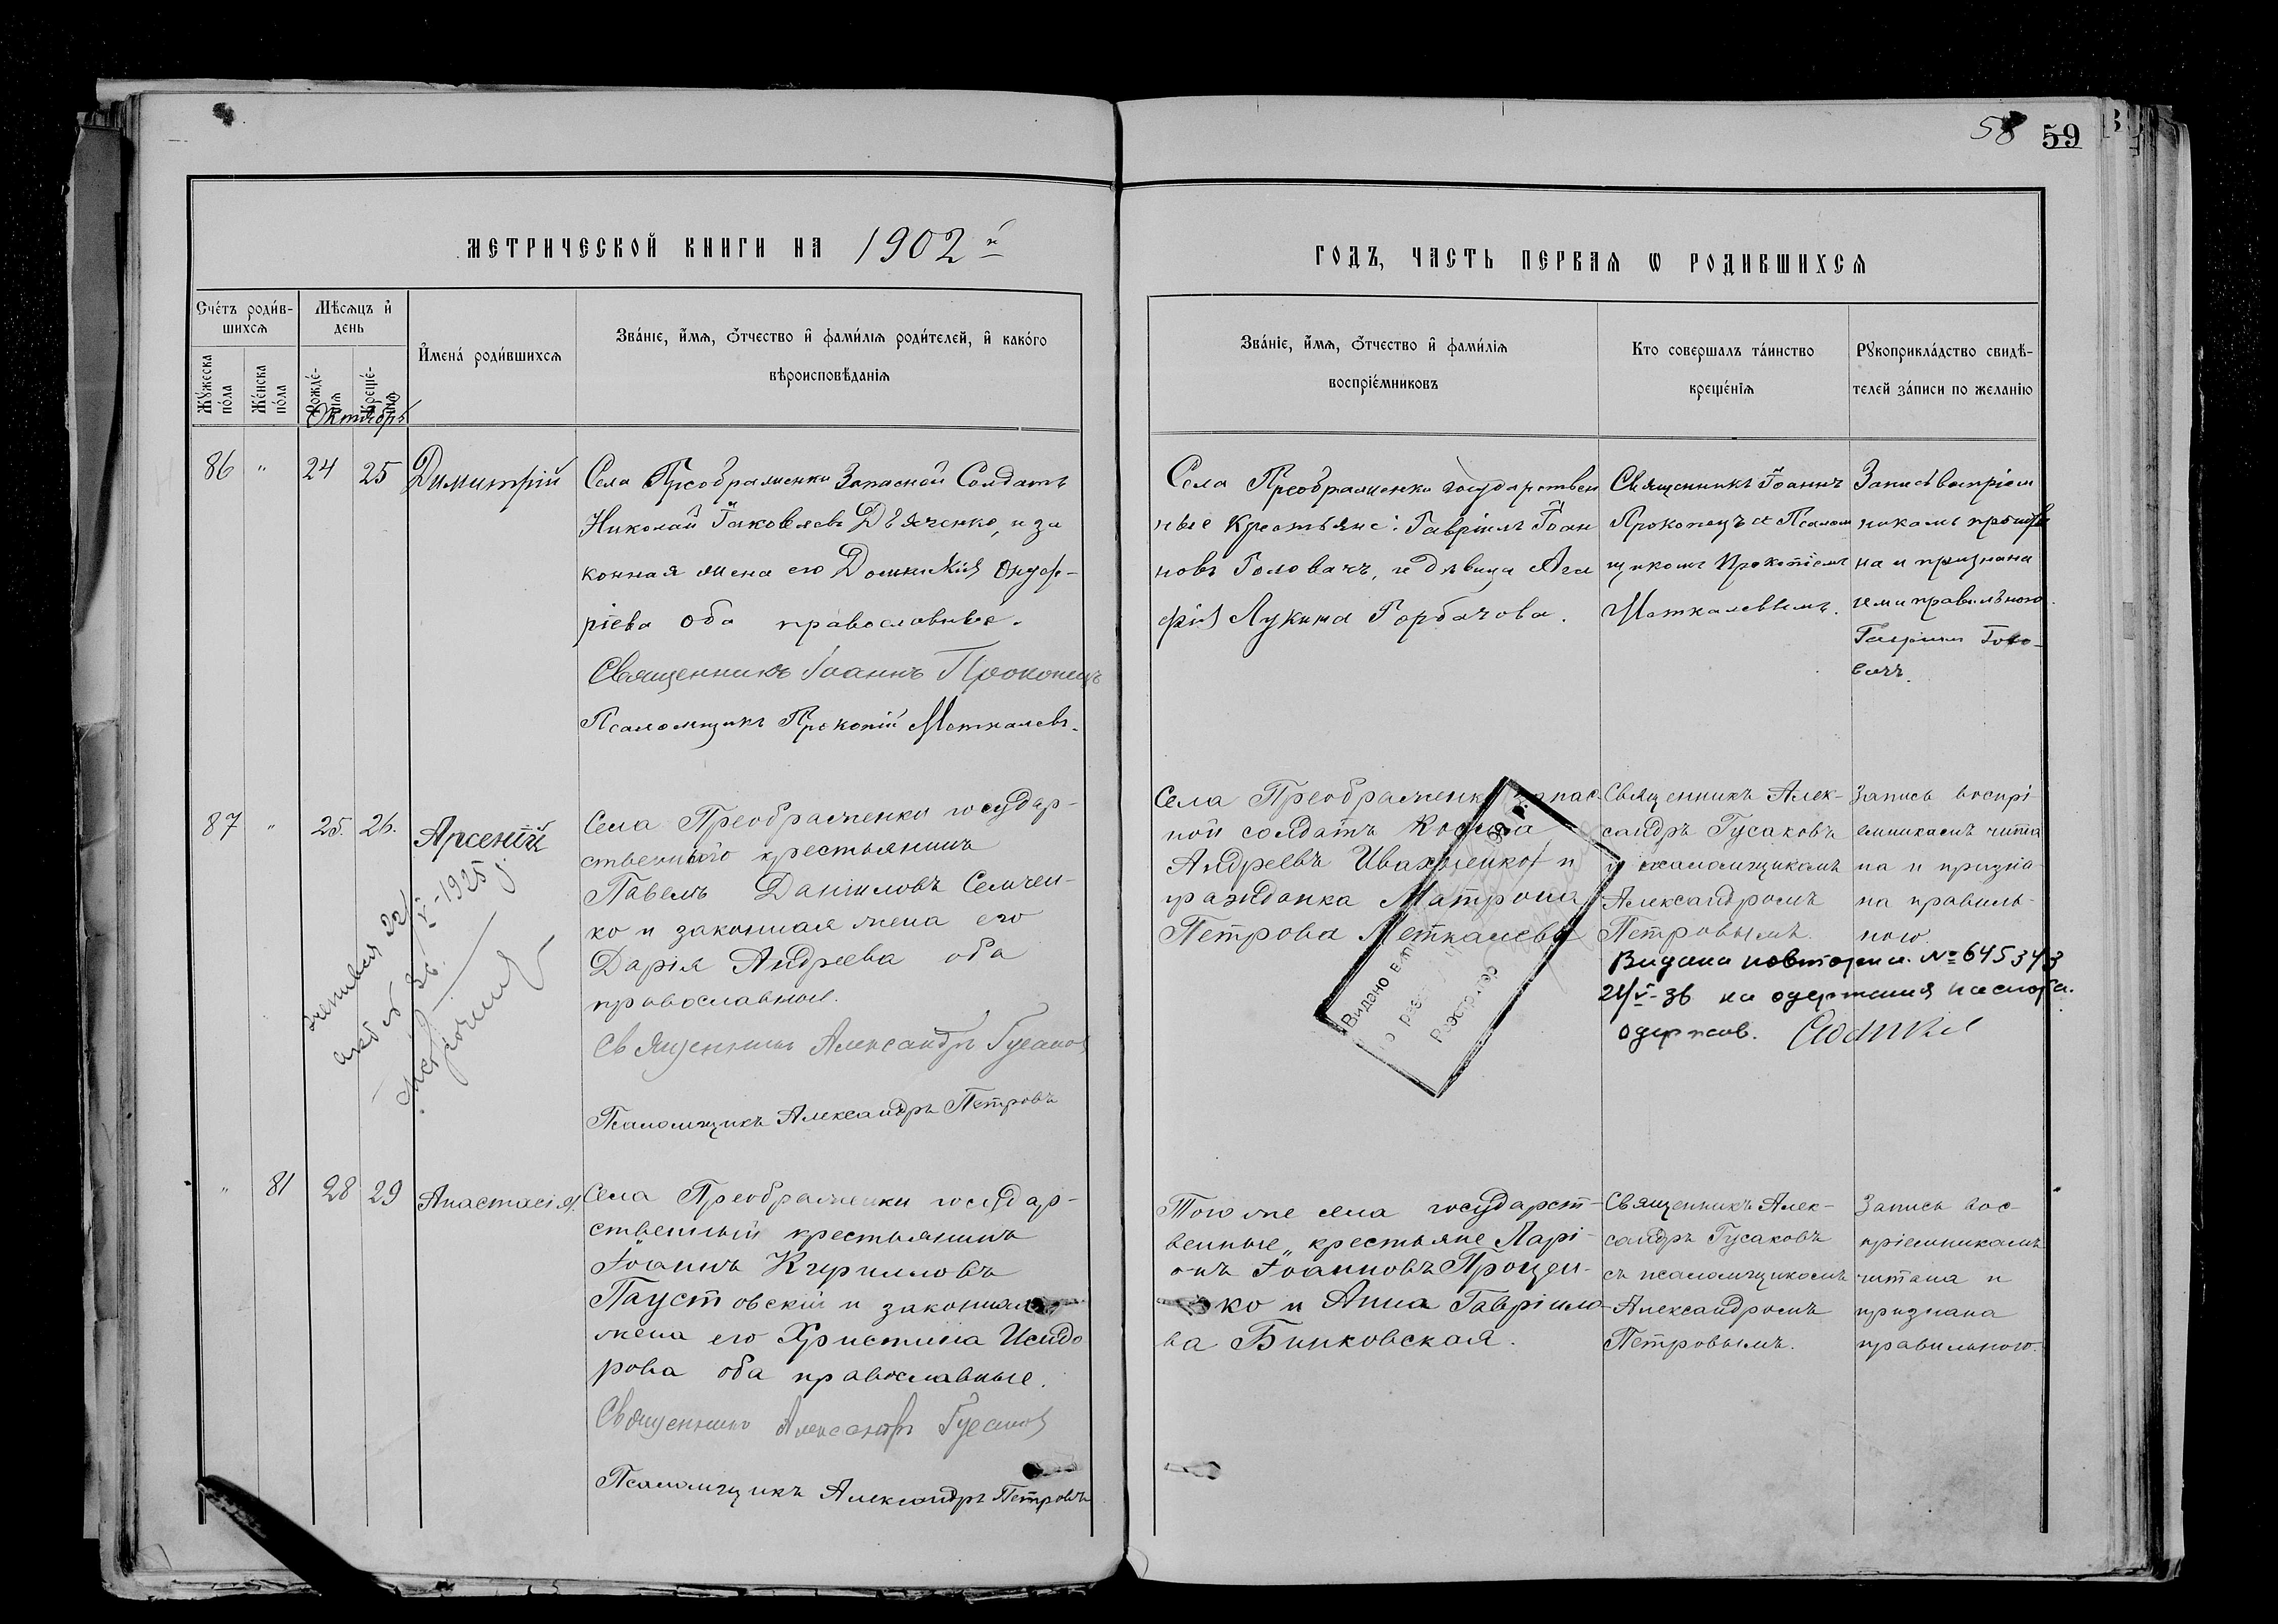 58 59
МЕТРИЧЕСКОЙ КНИГИ НА 1902й
ГОДЪ, ЧАСТЬ ПЕРВАЯ Ѡ РОДИВШИХСЯ
Счетъ родив-
шихся
Мѣсяцъ и
день
Мужеска
пола
Женска
пола
Рожде-
нія
Креще-
нія
Имена родившихся
Званіе, имя, отчество и фамилія родителей, и какого
вѣроисповѣданія
Званіе, имя, отчество и фамилія
воспріемниковъ
Кто совершалъ таинство
крещенія
Рукоприкладство свидѣ-
телей записи по желанію
Октябрь
86 " 24 25 Димитрій
Села Преображенки Запасной Солдатъ
Николай Іаковлевъ Дьяченко, и за
конная жена его Домникія Онуф-
ріева оба православные.
Священникъ Іоаннъ Прокопецъ
Псаломщикъ Прокопій Меткалевъ.
Села Преображенки государствен
ные крестьяне: Гавріилъ Іоан
новъ Головачъ, и дѣвица Ага
фія Лукина Горбачова.
Священникъ Іоаннъ
Прокопецъ и Псалом
щикомъ Прокопіемъ
Меткалевымъ.
Запись воспріем
никамъ прочита
на и признана
ими правильного
Гавріил Голо-
вачъ.
87 " 25. 26. Арсеній
Села Преображенки государ-
ственного крестьянинъ
Павелъ Даніиловъ Семчен-
ко и законная жена его
Дарія Андреева оба
православные.
Священникъ Александръ Гусаковъ
Псаломщикъ Александръ Петровъ
Села Преображенки запас
ной солдатъ Косма
Андреевъ Ивахненко и
гражданка Матрона
Петрова Меткалева
Священникъ Алек-
сандръ Гусаковъ
и псаломщикомъ
Александромъ
Петровымъ.
Запись воспрі-
емникамъ чита
на и призна-
на правиль-
ною.
Видана повторна. № 645343
21/V-36 на одержання паспорта.
одержав.
V-1925 р.
Видано
Реєстратор
" 81 28 29 Анастасія.
Села Преображенки государ-
ственный крестьянинъ
Іоаннъ Кирилловъ
Паустовскій и законная
жена его Христина Исидо
рова оба православные.
Священникъ Александръ Гусаковъ
Псаломщикъ Александръ Петровъ
Того же села государст-
венные крестьяне Ларі-
онъ Іоанновъ Процен-
ко и Анна Гавріило-
ва Бинковская.
Священникъ Алек-
сандръ Гусаковъ
съ псаломщикомъ
Александромъ
Петровымъ.
Запись вос-
пріемникамъ
читана и
признана
правильною.